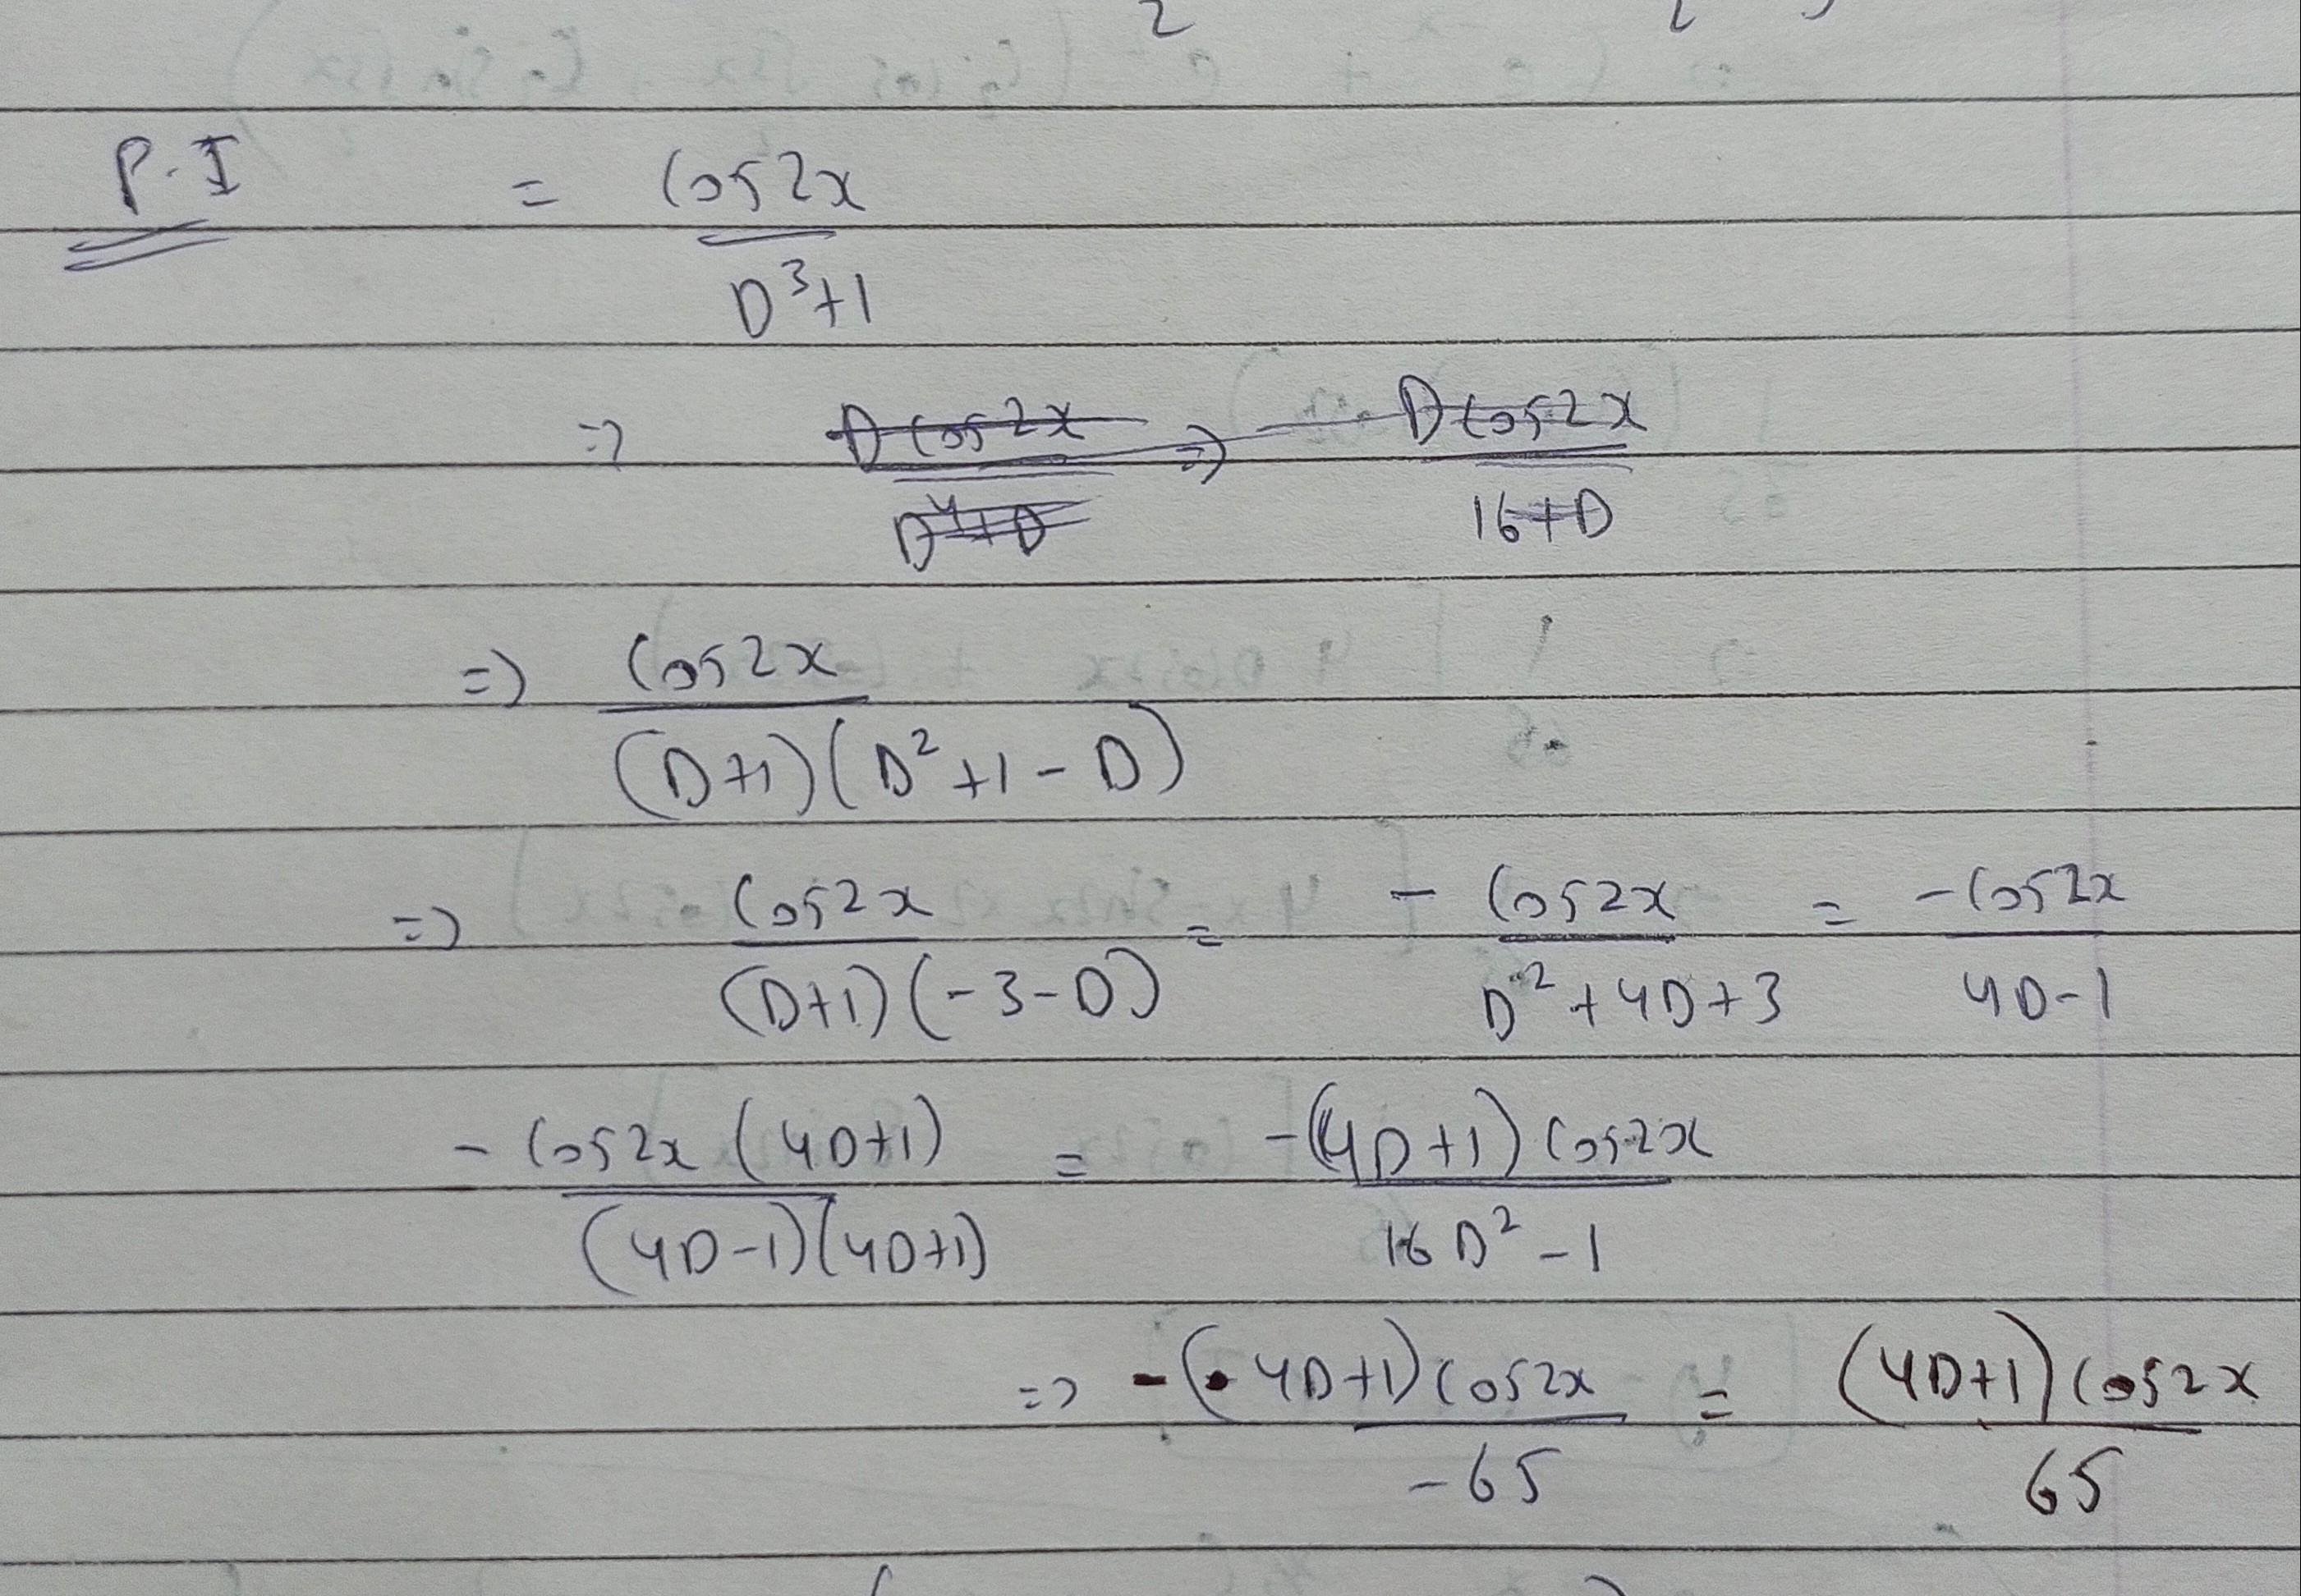 P.I = Cos2x / D³+1
=> D Cos2x / D⁴+D => D Cos2x / 16+D
=> Cos2x / (D+1)(D²+1-D)
=> Cos2x / (D+1)(-3-D) = - Cos2x / D²+4D+3 = -Cos2x / 4D-1
- Cos2x (4D+1) / (4D-1)(4D+1) = -(4D+1) Cos2x / 16D²-1
=> -(4D+1) Cos2x / -65 = (4D+1) Cos2x / 65